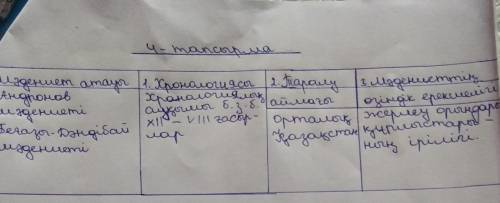 4-тапсырма
Мәдениет атауы
Андронов
мәдениеті
Беғазы-Дәндібай
мәдениеті
1. Хронологиясы
Хронологиялық
ауқымы б.з.б.
XII – VIII ғасыр-
лар
2. Таралу
аймағы
Орталық
Қазақстан
3. Мәдениеттің
өзіндік ерекшелігі
Жерлеу орындары
құрылыстары-
ның ірілігі.